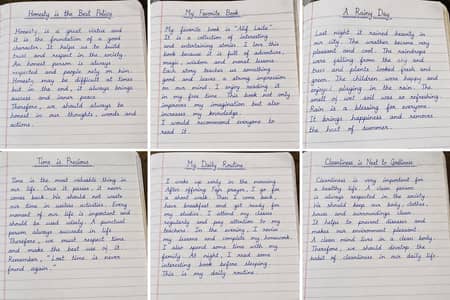 Honesty is the Best Policy
Honesty is a great virtue and
it is the foundation of a good
character. It helps us to build
trust and respect in the society.
An honest person is always
respected and people rely on him.
Honesty may be difficult at times
but in the end, it always brings
success and inner peace.
Therefore, we should always be
honest in our thoughts, words and
actions.
My Favorite Book
My favorite book is "Alif Laila"
It is a collection of interesting
and entertaining stories. I love this
book because it is full of adventure,
magic, wisdom and moral lessons.
Each story teaches us something
good and leaves a strong impression
on our mind. I enjoy reading it
in my free time. This book not only
improves my imagination but also
increases my knowledge.
I would recommend everyone to
read it.
A Rainy Day
Last night it rained heavily in
our city. The weather became very
pleasant and cool. The raindrops
were falling from the sky and
trees and plants looked fresh and
green. The children were happy and
enjoy playing in the rain. The
smell of wet soil was so refreshing.
Rain is a blessing for everyone.
It brings happiness and removes
the heat of summer.
Time is Precious
Time is the most valuable thing in
our life. Once it passes, it never
comes back. We should not waste
our time in useless activities. Every
moment of our life is important and
should be used wisely. A punctual
person always succeeds in life.
Therefore, we must respect time
and make the best use of it.
Remember, "Lost time is never
found again."
My Daily Routine
I wake up early in the morning.
After offering Fajr prayer, I go for
a short walk. Then I come back,
have breakfast and get ready for
my studies. I attend my classes
regularly and pay attention to my
teachers. In the evening, I revise
my lessons and complete my homework.
I also spend some time with my
family. At night, I read some
interesting book before sleeping.
This is my daily routine.
Cleanliness is Next to Godliness
Cleanliness is very important for
a healthy life. A clean person
is always respected in the society.
We should keep our body, clothes,
house and surroundings clean.
It helps to prevent diseases and
makes our environment pleasant.
A clean mind lives in a clean body.
Therefore, we should develop the
habit of cleanliness in our daily life.